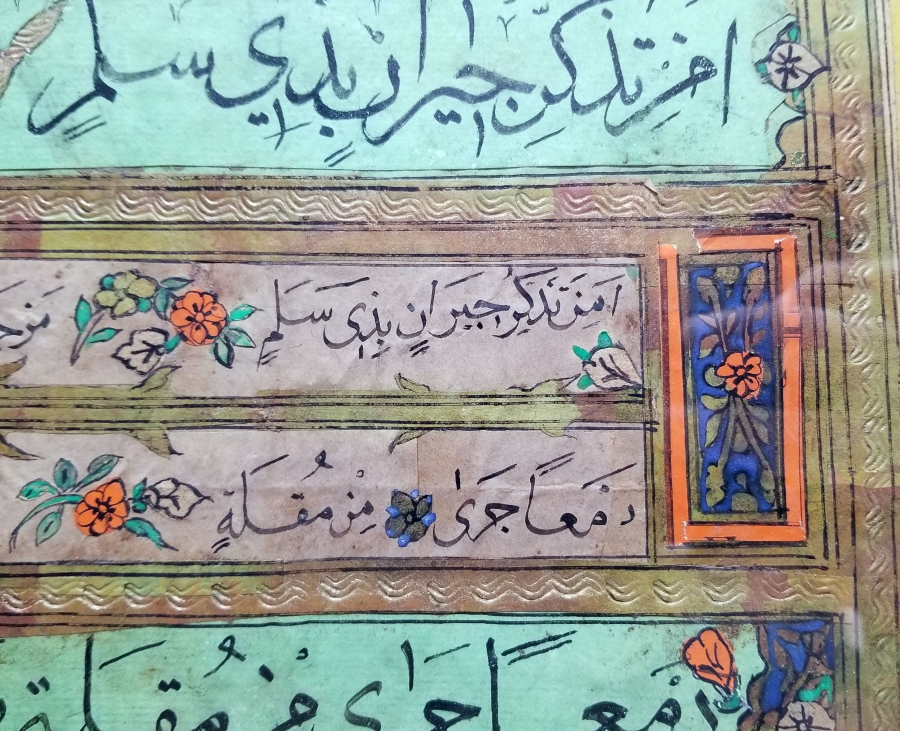 امِنْ تَذَكُّرِ جِيرَانٍ بِذِي سَلَمٍ
امِنْ تَذَكُّرِ جِيرَانٍ بِذِي سَلَمٍ
دَمْعًا جَرَى مِنْ مُقْلَةٍ
دَمْعًا جَرَى مِنْ مُقْلَةٍ